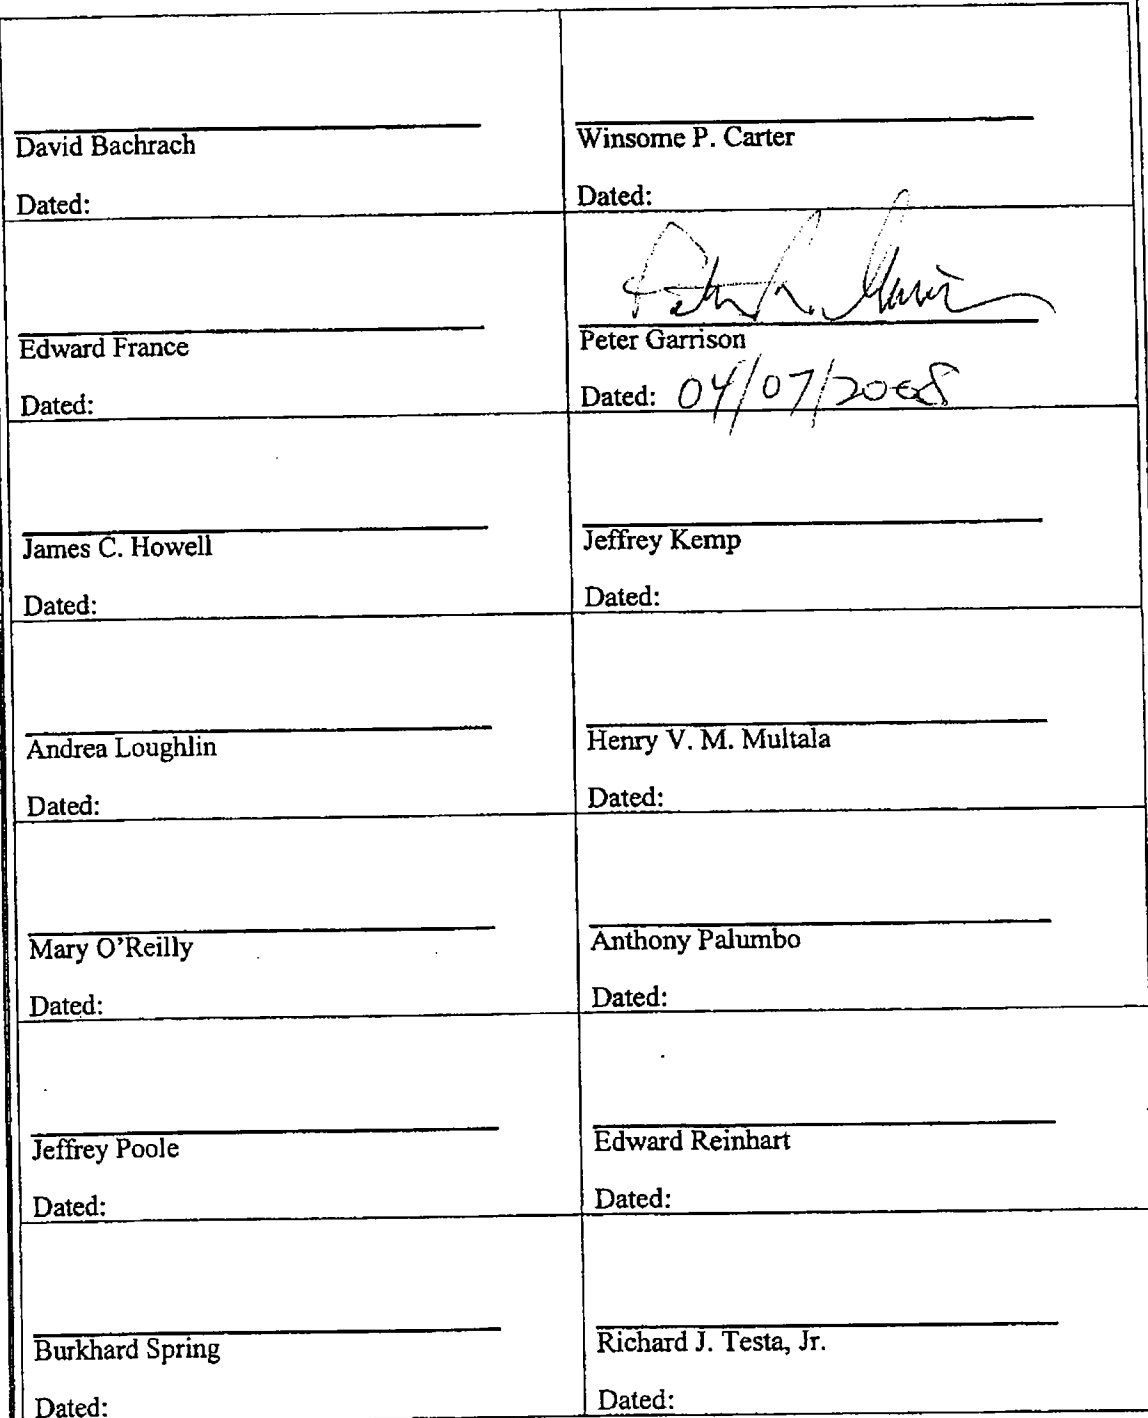 David Bachrach
Dated:
Winsome P. Carter
Dated:
Edward France
Dated:
Peter Garrison
Dated: 04/07/2008
James C. Howell
Dated:
Jeffrey Kemp
Dated:
Andrea Loughlin
Dated:
Henry V. M. Multala
Dated:
Mary O'Reilly
Dated:
Anthony Palumbo
Dated:
Jeffrey Poole
Dated:
Edward Reinhart
Dated:
Burkhard Spring
Dated:
Richard J. Testa, Jr.
Dated: